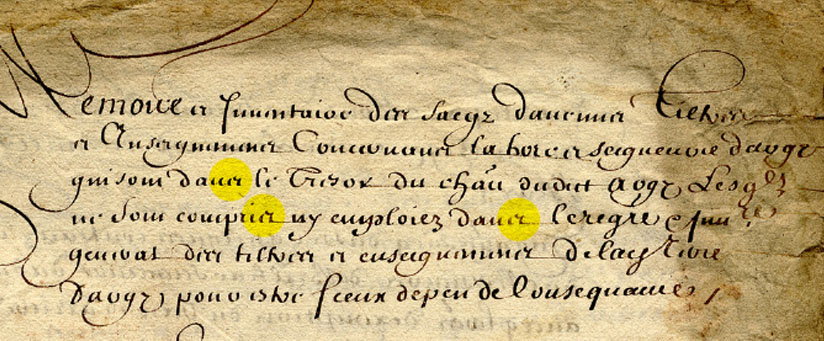 Memoire et Inventaire des sacqz daucuns tiltres
et Enseignemens Concernans la terre et seigneurie daugy
qui sont dans le Tresor du chau dudict Augy Lesqlz
ne sont compris ny emploiez dans le regre et inre
general des tiltres et enseignemens de lad terre
daugy pour estre